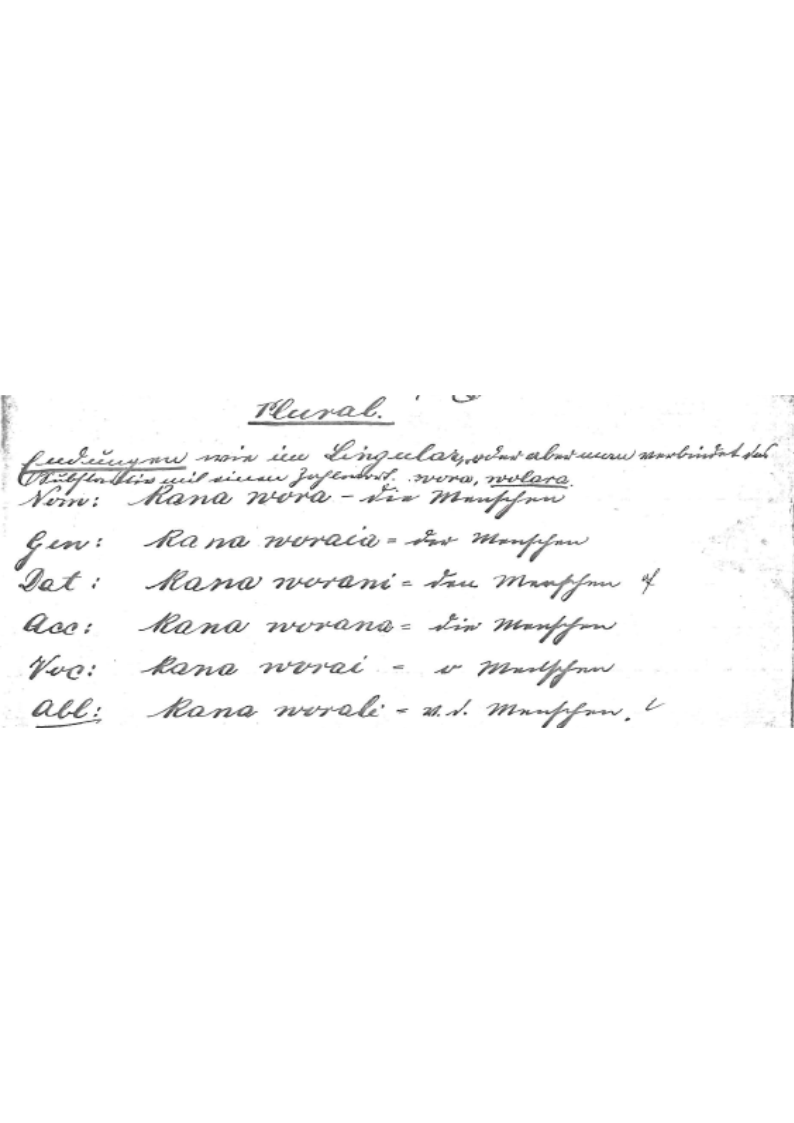 Plural.
Endungen wie im Singular, oder aber man verbindet das
Substantiv mit einem Zahlwort. wora, wolara.
Nom: Kana wora - die Menschen
Gen: Kana woraia = der Menschen
Dat: Kana worani = den Menschen
Acc: Kana worana = die Menschen
Voc: Kana worai - o Menschen
Abl: Kana worali = v. d. Menschen.